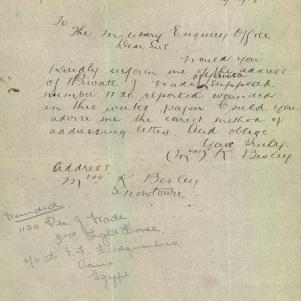 To
The Military Enquiry Office
Dear Sir
Would you
Kindly inform me of the address
of Private J Wade supposed
number 1120 reported wounded
in this weeks paper Could you
advise me the correct method of
addressing letters And oblige
Yours Truly
(Mrs) K Besley
Address
Mrs K Besley
Snowtown
Wounded
1120 Pte J Wade
3rd Light Horse
A I F Headquarters
Cairo
Egypt